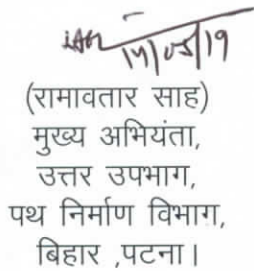 14/05/19
(रामावतार साह)
मुख्य अभियंता,
उत्तर उपभाग,
पथ निर्माण विभाग,
बिहार ,पटना।